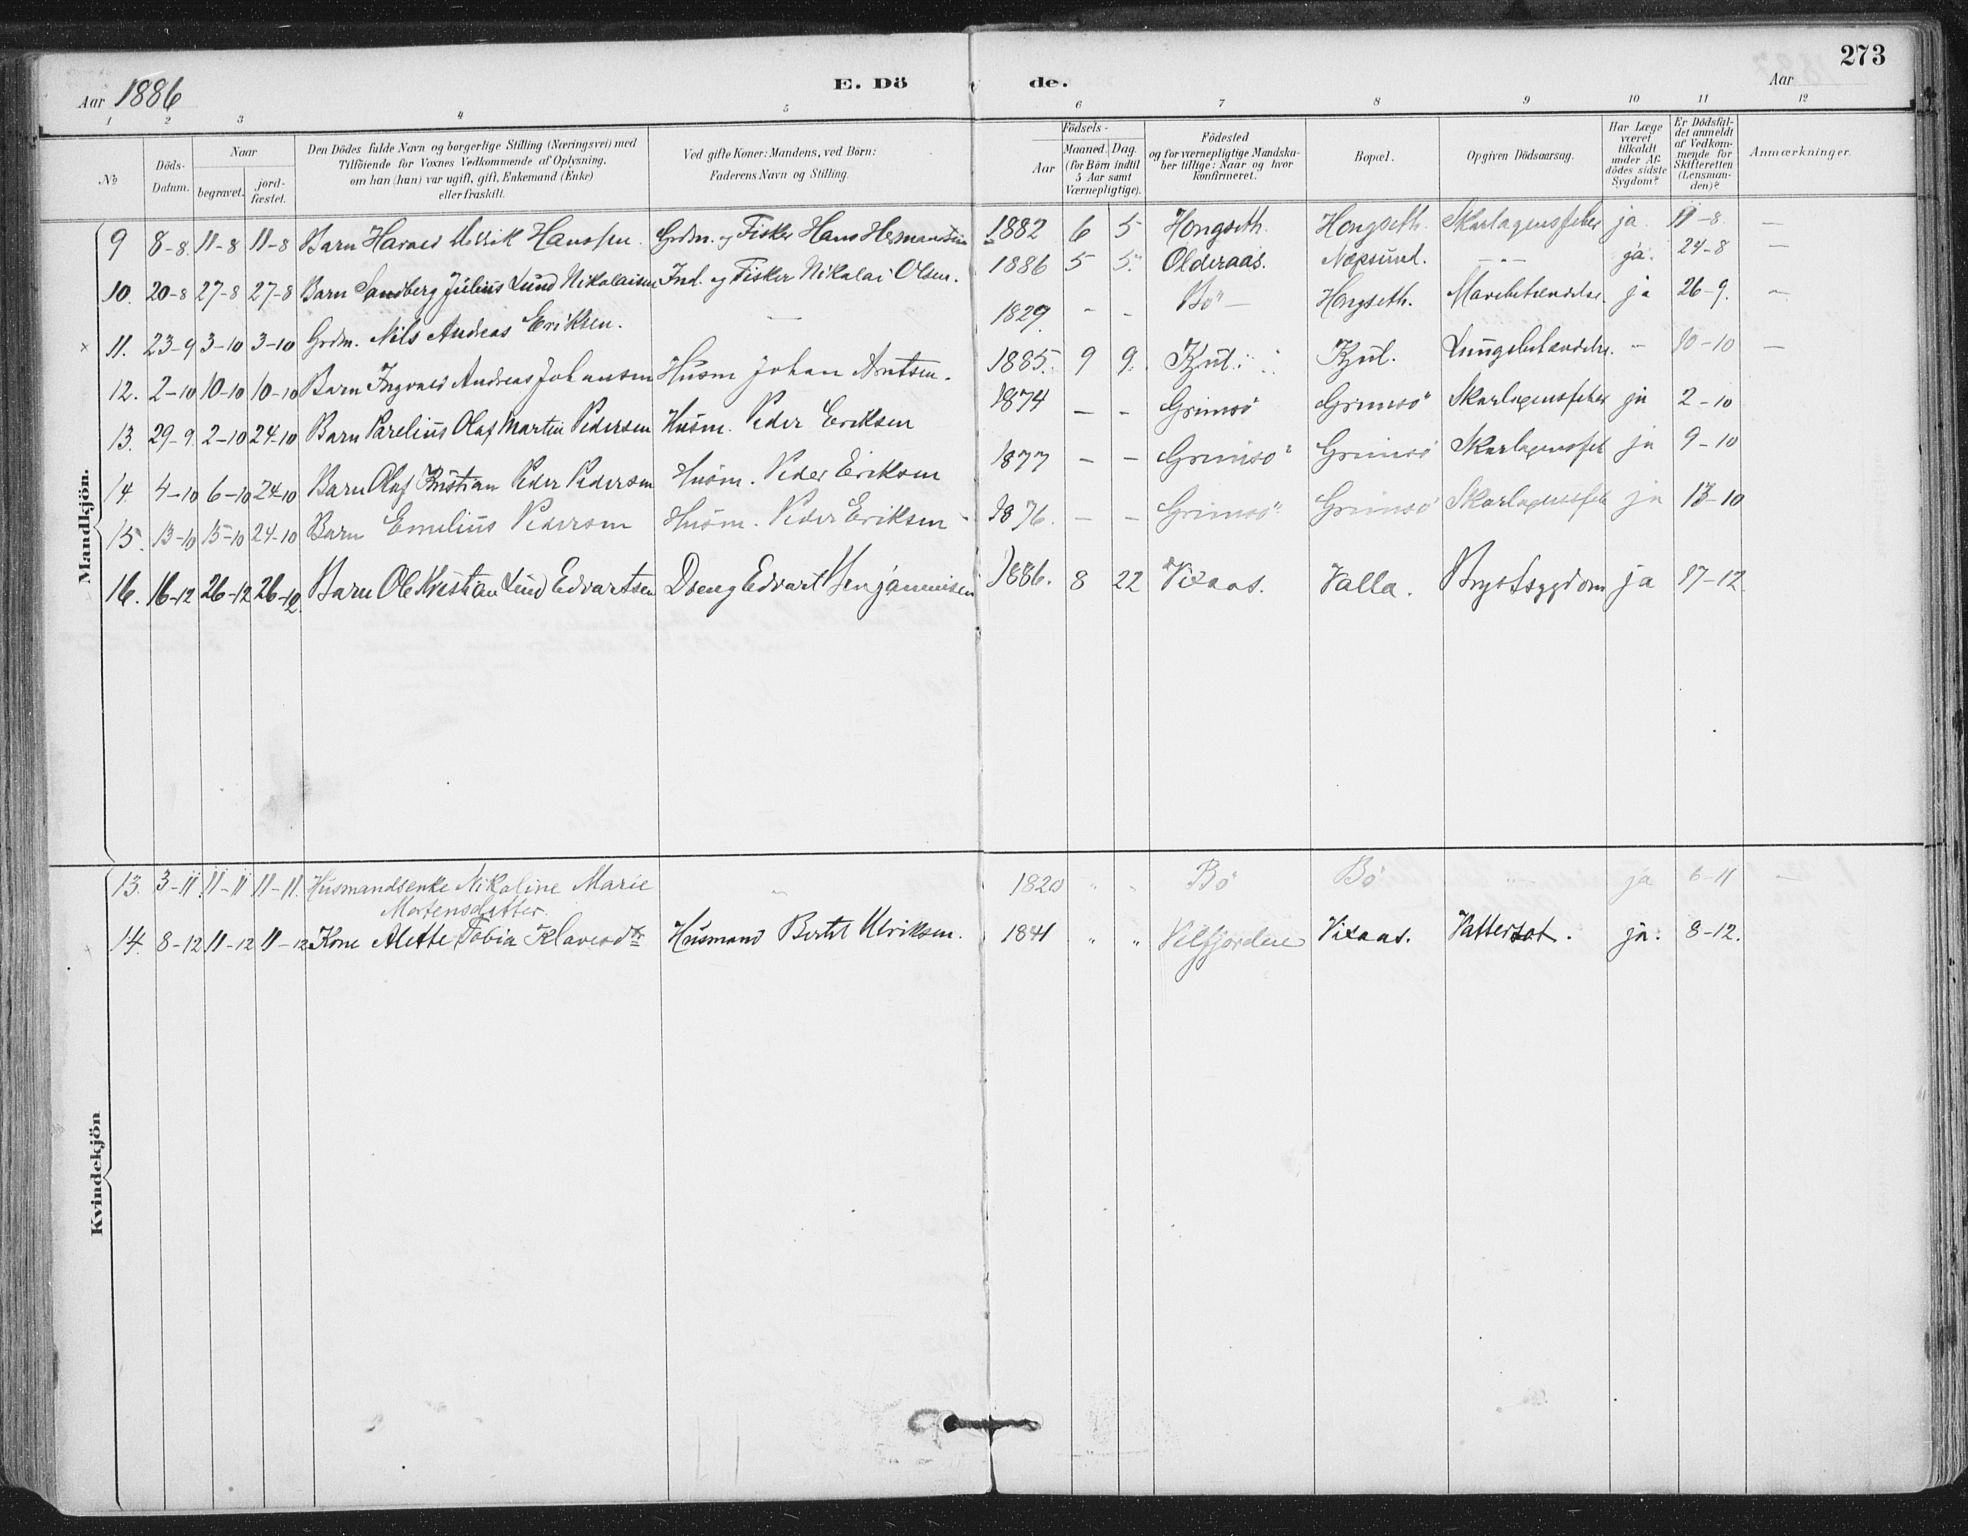 273
Aar 1886
E. Dö de.
Aar
1 2 3 4 5 6 7 8 9 10 11 12
№
Döds-Datum.
Naar
begravet.
jord-fæstet.
Den Dödes fulde Navn og borgerlige Stilling (Næringsvei) med
Tilföiende for Voxnes Vedkommende af Oplysning,
om han (hun) var ugift, gift, Enkemand (Enke)
eller fraskilt.
Ved gifte Koner: Mandens, ved Börn:
Faderens Navn og Stilling.
Födsels-
Aar
Maaned. Dag.
(for Börn indtil
5 Aar samt
Værnepligtige).
Födested
og for værnepligtige Mandska-
ber tillige: Naar og hvor
konfirmeret.
Bopæl.
Opgiven Dödsaarsag.
Har Læge
været
tilkaldt
under Af-
dödes sidste
Sygdom?
Er Dödsfal-
det anmeldt
af Vedkom-
mende for
Skifteretten
(Lensman-
den)?
Anmærkninger.
Mandkjön.
9 8-8. 11-8 11-8 Barn Harald Hanssen. Grdm. og Fisker Hans Hermansen 1882 6 5 Hongseth. Hongseth. Skarlagensfeber ja 11-8. —
10. 20-8 27-8 27-8 Barn Sandberg Julius Lund Nikolaisen Ind. og Fisker Nikolai Olsen. 1886 5 5. Olderaas. Næpsund. — " — ja. 24-8 —
11. 23-9 3-10 3-10 Grdm. Nils Andreas Eriksen. — 1829. - - Bö — Hongseth. Mavebetændelse. ja 26-9. —
12. 2-10 10-10 10-10 Barn Ingvald Andreas Johansen Husm Johan Arntsen. 1885. 9 9. Kjul. Kjul. Lungebetændelse. — 10-10 —
13. 29-9. 2-10 24-10 Barn Parelius Olaf Martin Pedersen Husm. Peder Eriksen 1874 — - Grimsö Grimsö Skarlagensfeber ja 2-10
14 4-10 6-10 24-10 Barn Olaf Kristian Peder Pedersen Husm. Peder Eriksen 1877 — — Grimsö Grimsö Skarlagensfeb ja 9-10
15. 13-10 15-10 24-10 Barn Emelius Pedersen Husm. Peder Eriksen 1876. — — Grimsö Grimsö Skarlagensfeb ja 13-10
16. 16-12 26-12 26-12 Barn Ole Kristian Lund Edvartsen Dreng Edvart Benjaminsen 1886. 8 22 Vixaas. Valla. Brystsygdom ja 17-12.
Kvindekjön
13. 3-11 11-11 11-11. Husmandsenke Nikoline Marie
Mortensdatter. " 1820 " " Bö Bö " ja 6-11 —
14. 8-12 11-12 11-12 Kone Alette Tobia Klavesdtr Husmand Bertel Ulriksen. 1841 " " Velfjorden Vixaas. Vattersot. ja. 8-12.